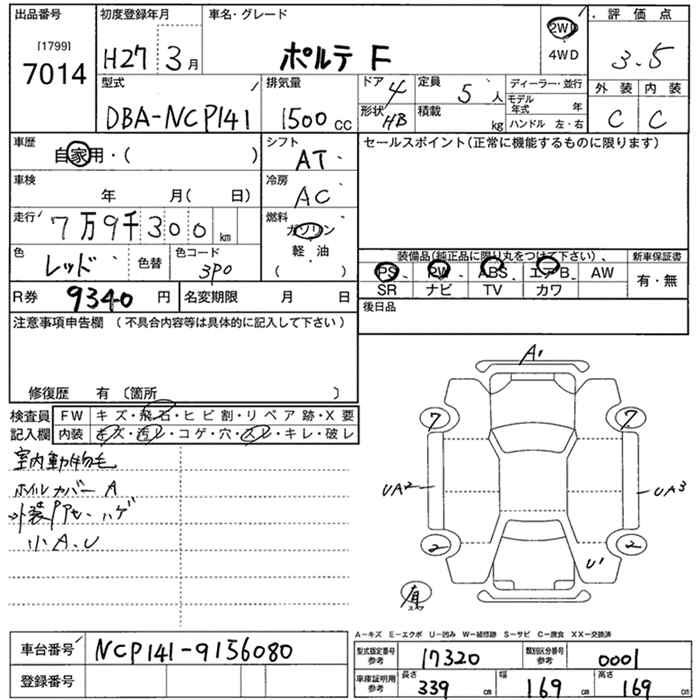 出品番号
[1799]
7014
初度登録年月
H27 3月
車名・グレード
ポルテ F
2WD
4WD
評価点
3.5
型式
DBA-NCP141
排気量
1500 CC
ドア 4
形状 HB
定員 5 人
積載 kg
ディーラー・並行
モデル年式 年
ハンドル 左・右
外装 内装
C C
車歴
自家用・( )
シフト
AT
セールスポイント(正常に機能するものに限ります)
車検
年 月( 日)
冷房
AC
走行
7万9千300 km
燃料
ガソリン
軽・油
( )
色
レッド
色替
色コード
3P0
装備品(純正品に限り丸をつけて下さい)、
新車保証書
PS PW ABS エアB AW
有・無
SR ナビ TV カワ
R券 9340 円
名変期限 月 日
後日品
注意事項申告欄 (不具合内容等は具体的に記入して下さい)
修復歴 有 〔箇所 〕
検査員
記入欄
FW キズ・飛石・ヒビ割・リペア跡・X要
内装 キズ・汚レ・コゲ・穴・スレ・キレ・破レ
室内動物毛
ホイルカバー A
外装PPセ、ハゲ
小A、U
A1
7
7
UA2
UA3
2
2
U1
A-キズ E-エクボ U-凹み W-補修跡 S-サビ C-腐食 XX-交換済
車台番号 NCP141-9156080
登録番号
型式指定番号
参考
17320
類別区分番号
参考
0001
車庫証明用
参考
長さ 339 cm
幅 169 cm
高さ 169 cm